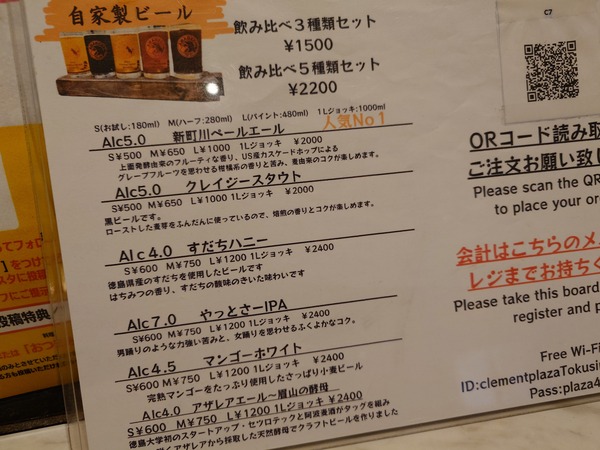 自家製ビール
飲み比べ3種類セット
¥1500
飲み比べ5種類セット
¥2200
S(お試し:180ml) M(ハーフ:280ml) L(パイント:480ml) 1Lジョッキ:1000ml
人気No1
Alc5.0 新町川ペールエール
S¥500 M¥650 L¥1000 1Lジョッキ ¥2000
上面発酵由来のフルーティな香り、US産カスケードホップによる
グレープフルーツを思わせる柑橘系の香りと苦み、麦由来のコクが楽しめます。
Alc5.0 クレイジースタウト
S¥500 M¥650 L¥1000 1Lジョッキ ¥2000
黒ビールです。
ローストした麦芽をふんだんに使っているので、焙煎の香りとコクが楽しめます。
Alc4.0 すだちハニー
S¥600 M¥750 L¥1200 1Lジョッキ ¥2400
徳島県産のすだちを使用したビールです
はちみつの香り、すだちの酸味のきいた味わいです
Alc7.0 やっとさーIPA
S¥600 M¥750 L¥1200 1Lジョッキ ¥2400
男踊りのような力強い苦みと、女踊りを思わせるふくよかなコク。
Alc4.5 マンゴーホワイト
S¥600 M¥750 L¥1200 1Lジョッキ ¥2400
完熟マンゴーをたっぷり使用したさっぱり小麦ビール
Alc4.0 アザレアエール~眉山の酵母
S¥600 M¥750 L¥1200 1Lジョッキ ¥2400
徳島大学初のスタートアップ・セツロテックと阿波麦酒がタッグを組み
アザレアから採取した天然酵母でクラフトビールを作りました
C7
QRコード読み取
ご注文お願い致し
Please scan the QR
to place your or
会計はこちらのメ
レジまでお持ちく
Please take this board
register and p
Free Wi-Fi
ID:clementplazaTokusi
Pass:plaza4
てフォロ
】をつけ
スタに投稿
フにご提示
投稿特典
料理
または「おつ